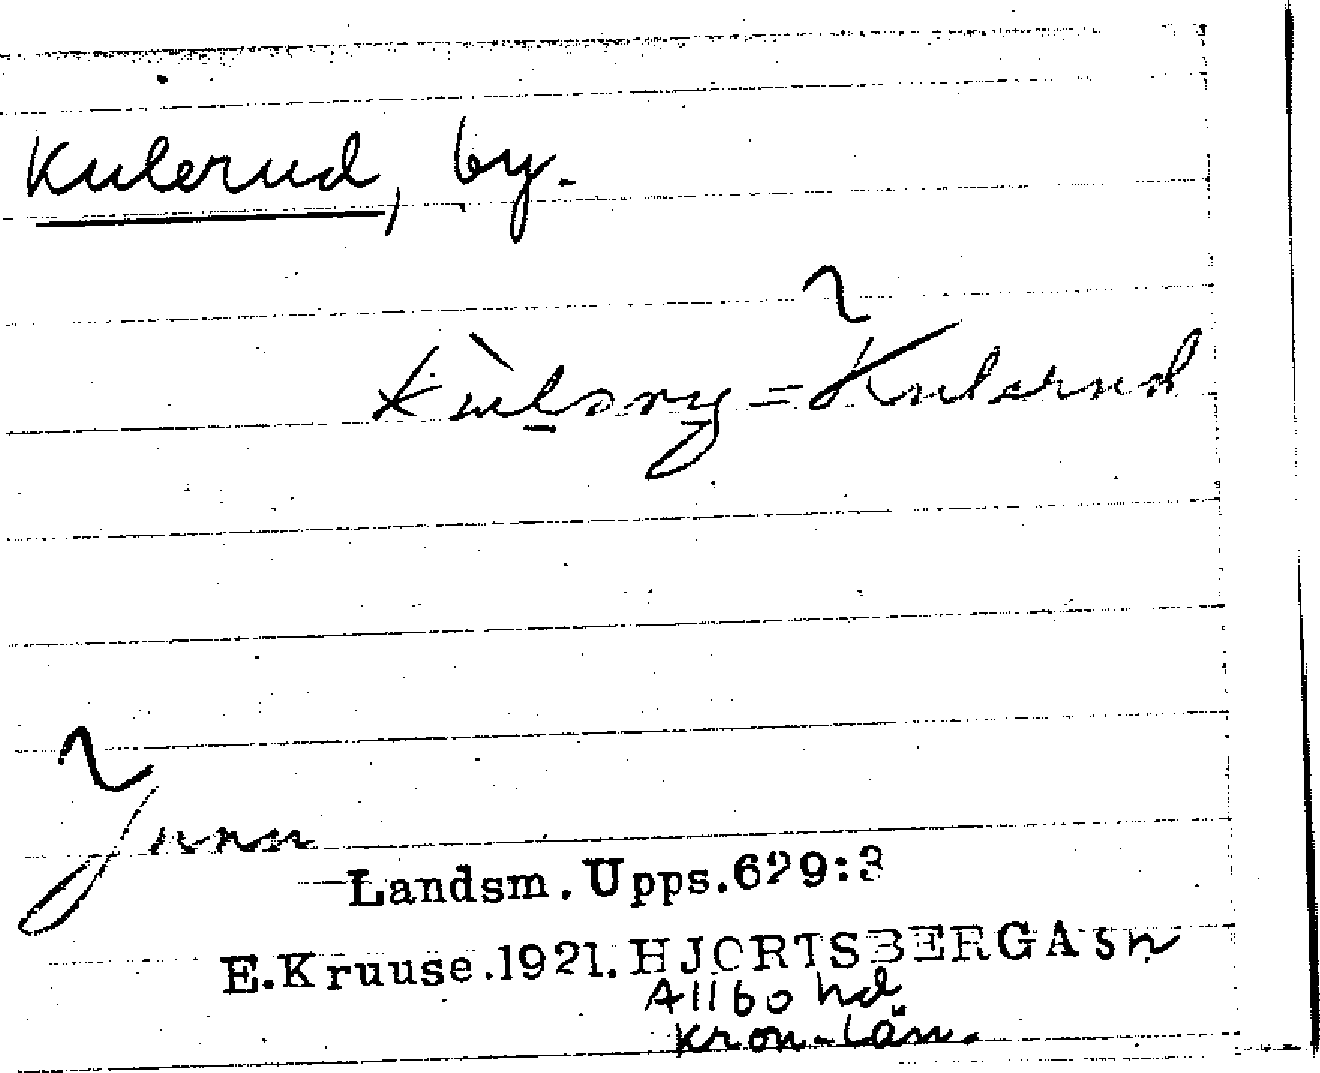 Kulerud, by.
= Kulerud
Landsm. Upps. 629:3
E. Kruuse. 1921. HJORTSBERGA sn
Allbo hd
Kron. län.